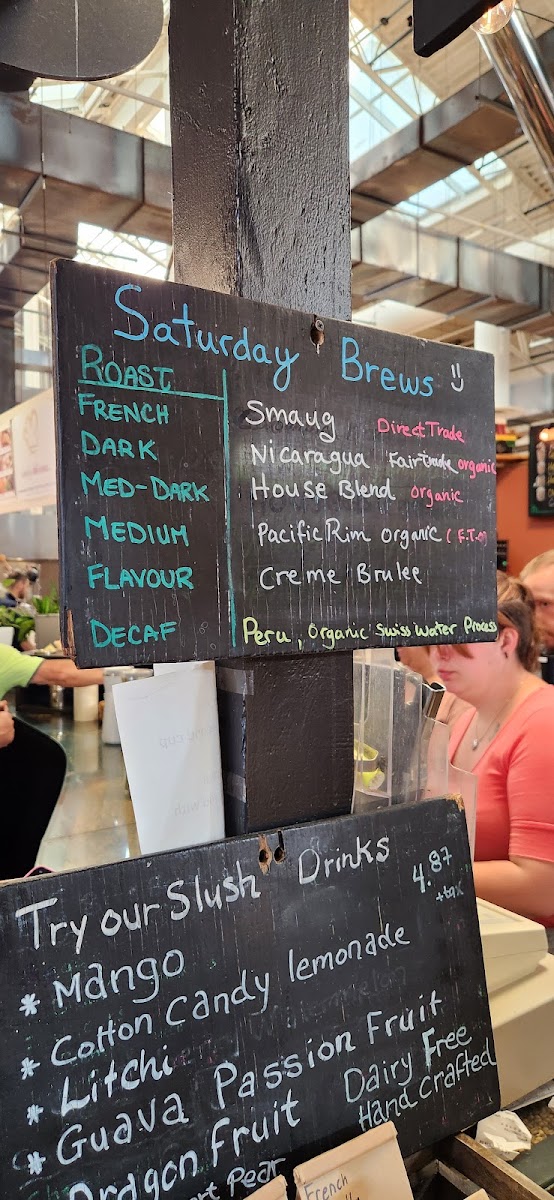 Saturday Brews
ROAST
FRENCH Smaug Direct Trade
DARK Nicaragua Fair trade organic
MED-DARK House Blend organic
MEDIUM Pacific Rim organic (F.T.O)
FLAVOUR Creme Brulee
DECAF Peru, Organic Swiss Water Process
Try our Slush Drinks 4.87
+tax
* Mango
* Cotton Candy lemonade
* Litchi
* Guava Passion Fruit
Dragon Fruit Dairy Free
Hand Crafted
Pear
French